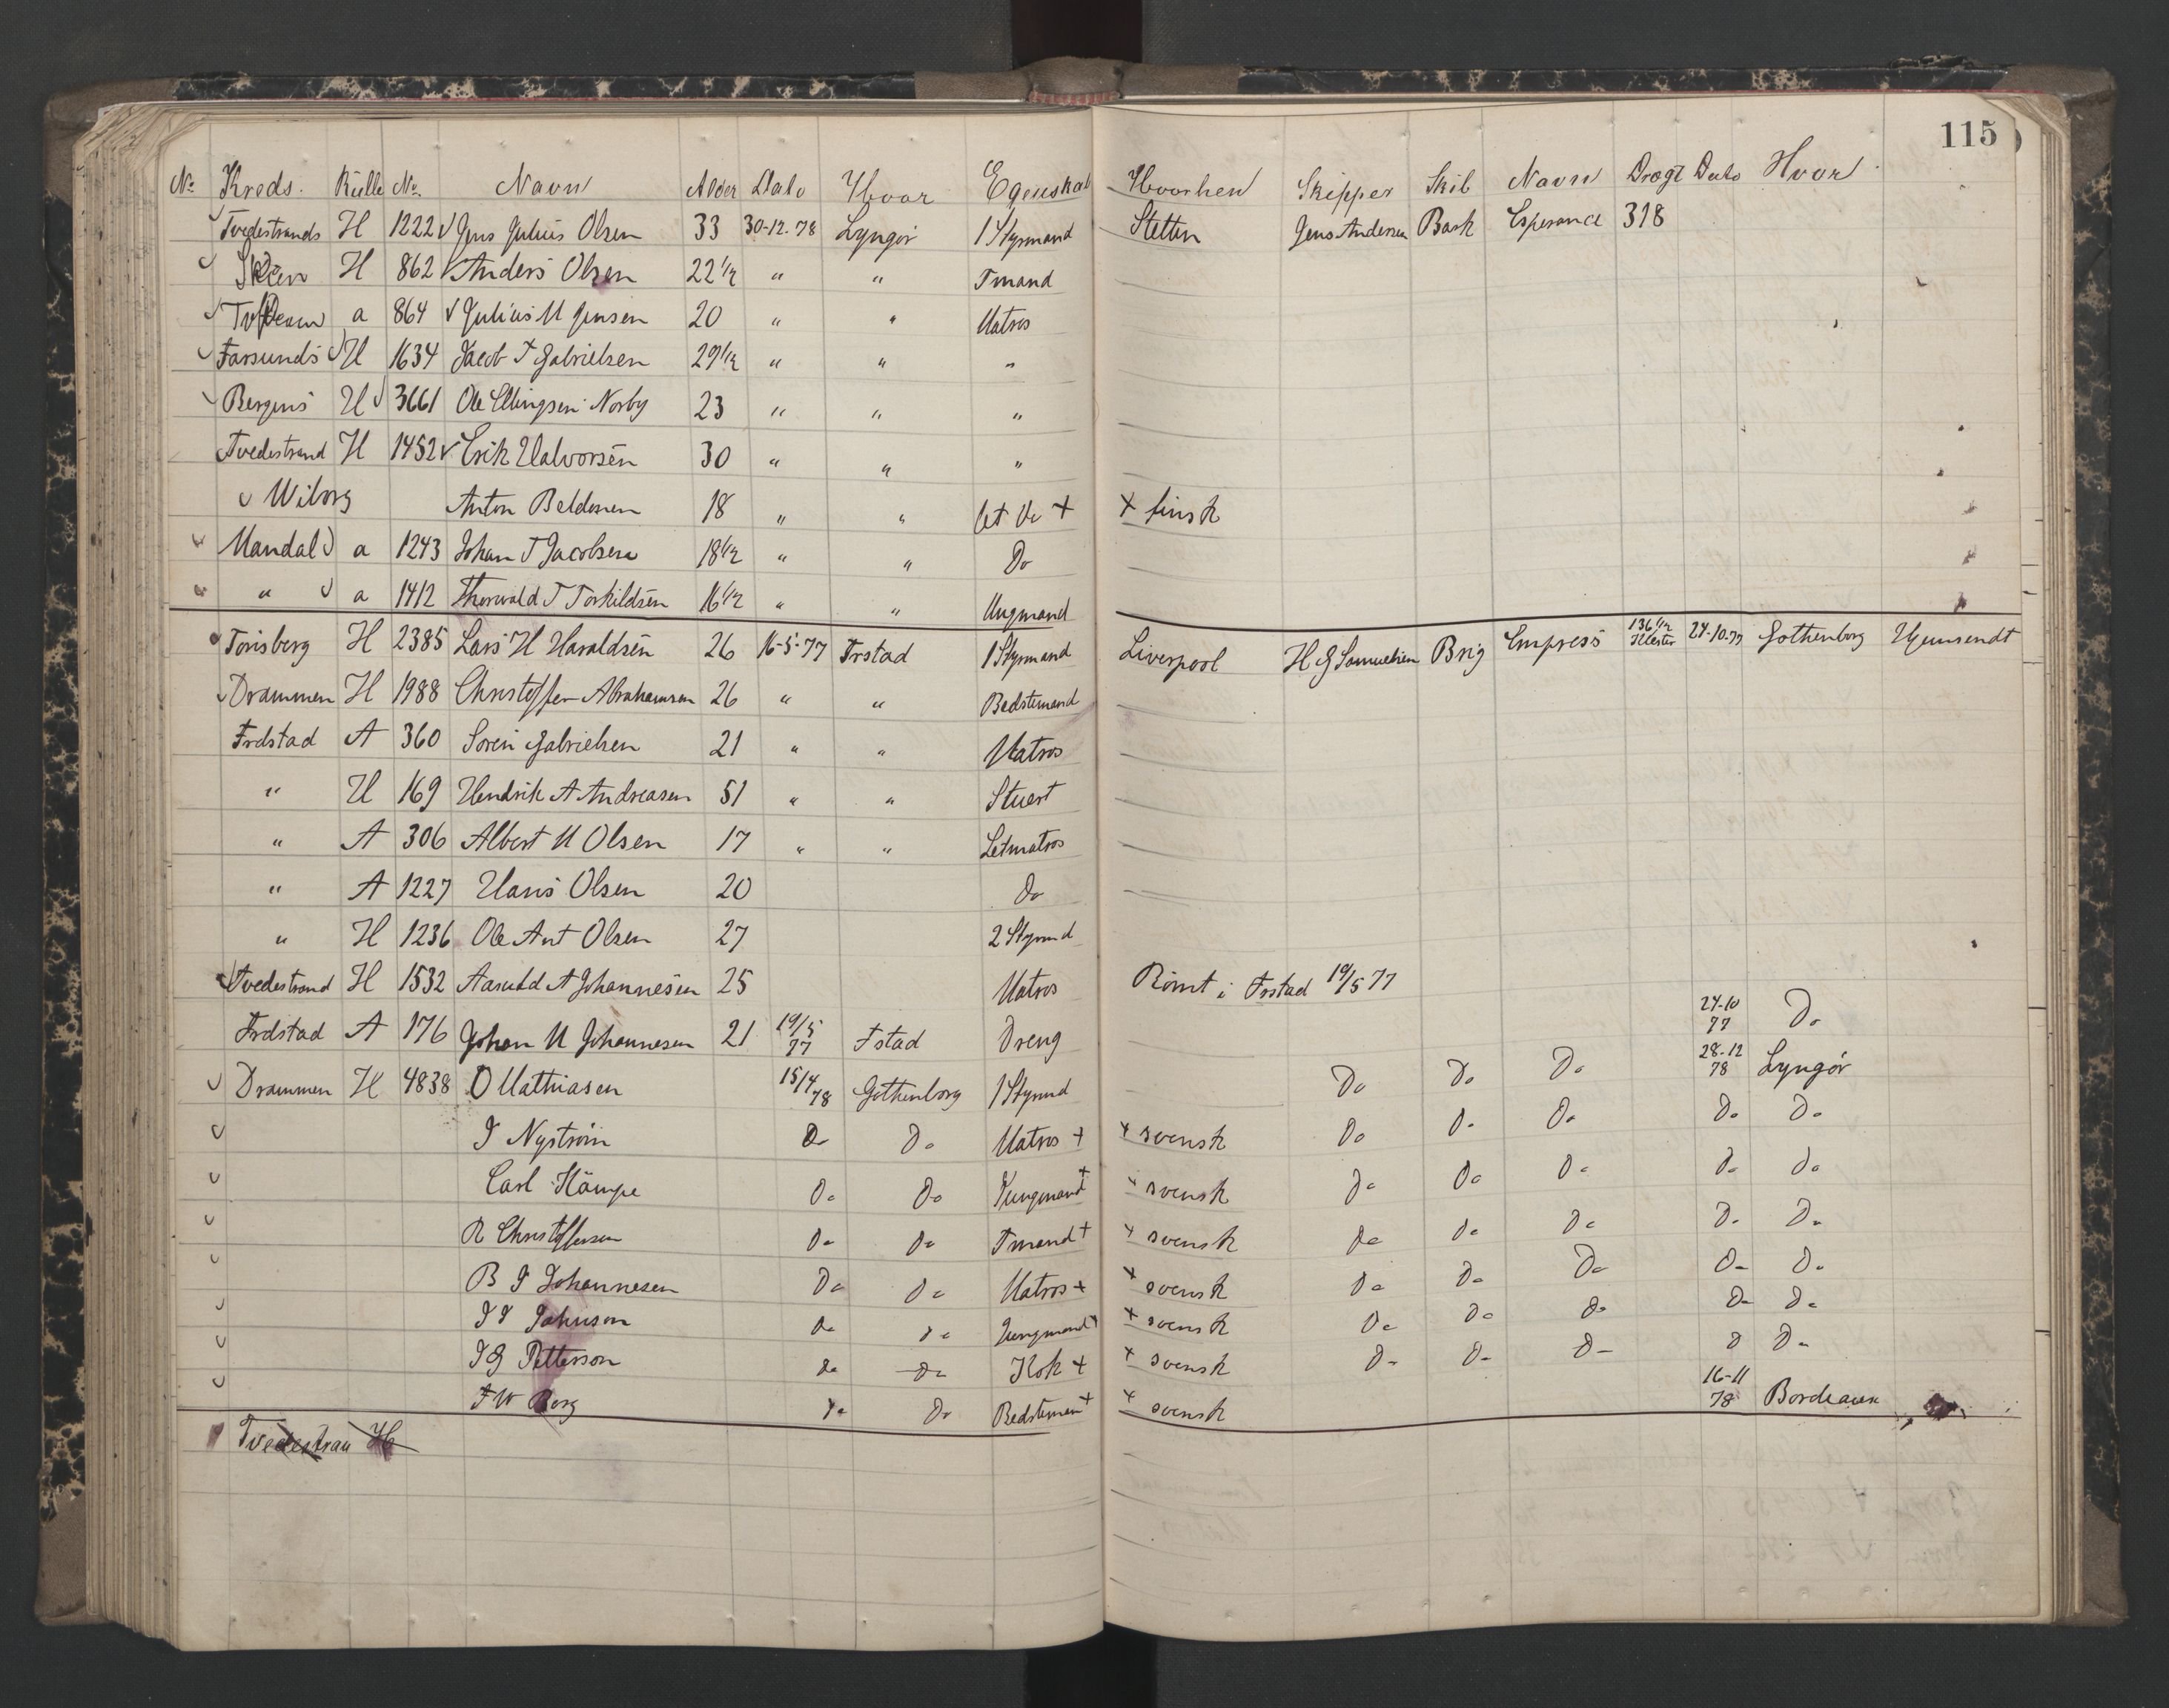 115
No Kreds. Rulle No. Navn Alder Dato Hvor Egenskab Hvorhen Skipper Skib Navn Drægt Dato Hvor
Tvedestrands H 1222 Jens Julius Olsen 33 30-12-78 Lyngør 1 Styrmand Stettin Jens Andersen Bark Esperance 318
Skien H 862 Anders Olsen 22 1/2 " " Tmand
a 864 Julius M Jensen 20 " " Matros
Farsunds H 1634 Jacob T Gabrielsen 29 1/2 " " "
Bergens H 3661 Ole Ellingsen Norby 23 " " "
Tvedestrand H 1452 Erik Halvorsen 30 " " "
Wiborg Anton Beldonen 18 " " Let Do + + finsk
Mandal a 1243 Johan T Jacobsen 18 1/2 " " Do
" a 1412 Thorvald T Torkildsen 16 1/2 " " Ungmand
Tønsberg H 2385 Lars H Haraldsen 26 16-5-77 Frstad 1 Styrmand Liverpool H G Samuelsen Brig Empress 136 1/2 Clester 24-10-77 Gothenborg Hjemsendt
Drammen H 1988 Christoffer Abrahamsen 26 " " Bedstemand
Frdstad A 360 Soren Gabrielsen 21 " " Matros
" H 169 Hendrik A Andreasen 51 " " Stuert
" A 306 Albert M Olsen 17 " " Letmatros
" A 1227 Hans Olsen 20 Do
" H 1236 Ole Ant Olsen 27 2 Styrmd
Tvedestrand H 1532 A Johannesen 25 Matros Rømt i Frstad 19/5 77
Frdstad A 176 Johan M Johannesen 21 19/5 77 Fstad Dreng 24-10 77 Do
Drammen H 4838 O Mathiasen 15/4 78 Gothenborg 1 Styrmd Do Do Do 28-12 78 Lyngør
I Nystrøm Do Do Matros + + svensk Do Do Do Do Do
Carl Hampe Do Do Jungmand + + svensk Do Do Do Do Do
R Christoffersen Do Do Tmand + + svensk Do Do Do Do Do
B I Johannesen Do Do Matros + + svensk Do Do Do Do Do
I I Johnson Do Do Jungmand + + svensk Do Do Do Do Do
I G Petterson Do Do Kok + + svensk Do Do Do Do Do
F W Borg Do Do Bedsteman + + svensk 16-11 78 Bordeaux
Tvedestran H